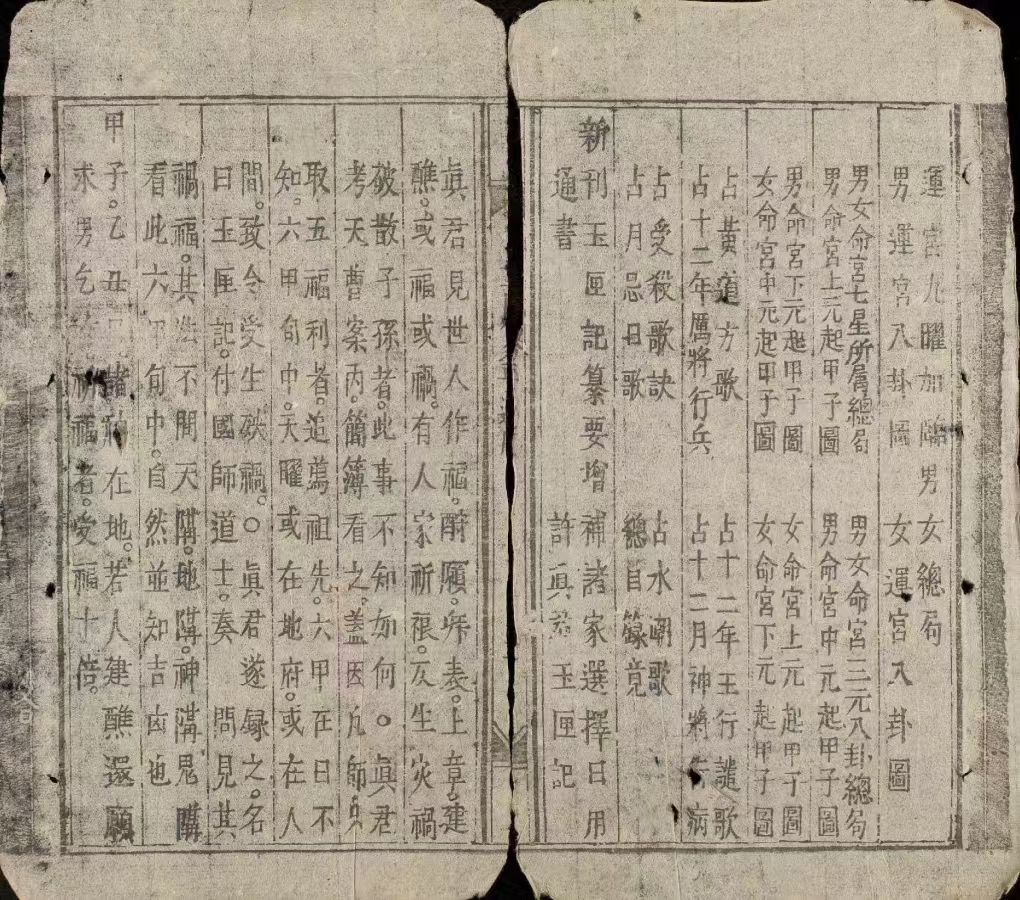 運宮九曜加臨男女總局
男運宮八卦圖　女運宮八卦圖
男女命宮七星所屬總局　男女命宮三元八卦總局
男命宮上元起甲子圖　男命宮中元起甲子圖
男命宮下元起甲子圖　女命宮上元起甲子圖
女命宮中元起甲子圖　女命宮下元起甲子圖
占黃道方歌　占十二年王行譴歌
占十二年厲將行兵　占十二月神將行病
占受殺歌訣　占水潮歌
占月忌日歌　總目錄竟
新刊玉匣記纂要增補諸家選擇日用
通書　許眞君玉匣記
眞君見世人作福。酧願。奏表。上章。建
醮。或福或禍。有人家祈禳。反生災禍
破散子孫者。此事不知如何○眞君
考天曹案丙。簡簿看之。蓋因凡師只
取五福利者。追薦祖先。六甲在日不
知。六甲旬中。天曜或在地府。或在人
間。致令受生殃禍。○眞君遂録之。名
曰玉匣記。付國師道士。奏　問見其
禍福。其法不開天隣。地隣。神溝鬼購
看此六甲旬中。自然並知吉凶也
甲子。乙丑　諸神在地。若人建醮還願
求男乞　祈福者。受福十倍。